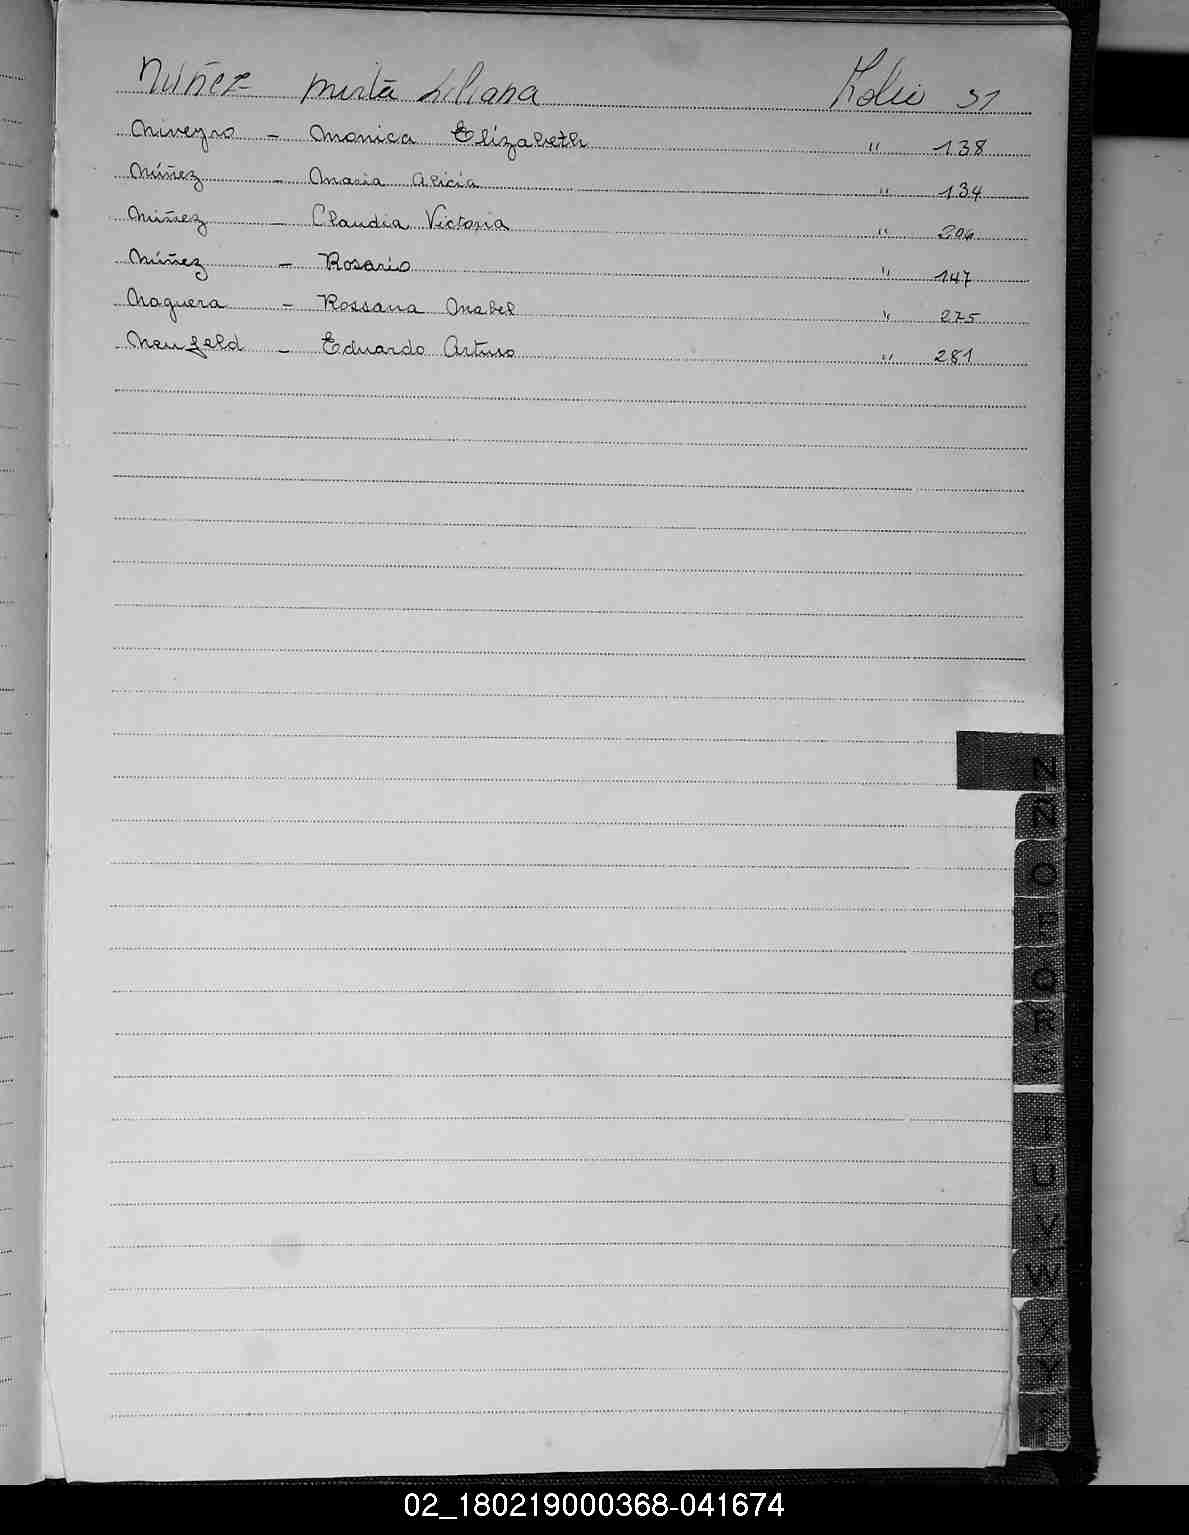 Núñez - Mirta Liliana Folio 51
Niveyro - Monica Elizabeth " 138
Núñez - Maria Alicia " 134
Núñez - Claudia Victoria " 206
Núñez - Rosario " 147
Noguera - Rossana Mabel " 275
Neufeld - Eduardo Arturo " 281
N
Ñ
O
P
Q
R
S
T
U
V
W
X
Y
Z
02_180219000368-041674